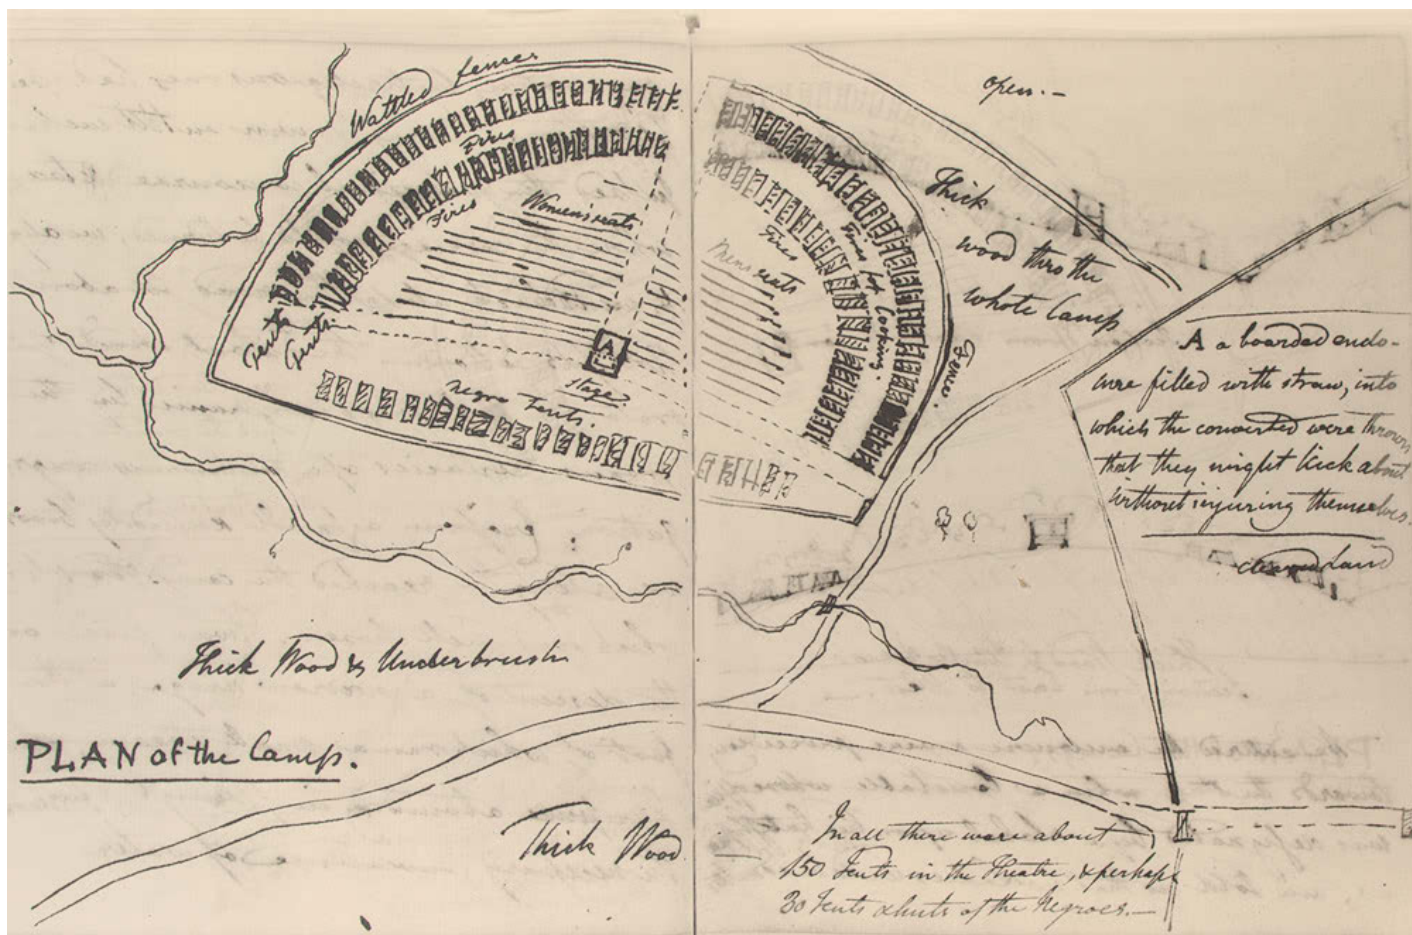 Wattled fence
Fires
Fires
Women's seats
Tents
Tents
A
Stage
Negro Tents.
Mens seats
Fires
Fires for Cooking.
Fence.
open.-
Thick
wood thro the
whole Camp
A a boarded enclo-
sure filled with straw, into
which the converted were thrown
that they might kick about
without injuring themselves.
cleared Land
Thick Wood & Underbrush
PLAN of the Camp.
Thick Wood
In all there were about
150 Tents in the Theatre, & perhaps
30 Tents & huts of the Negroes.—